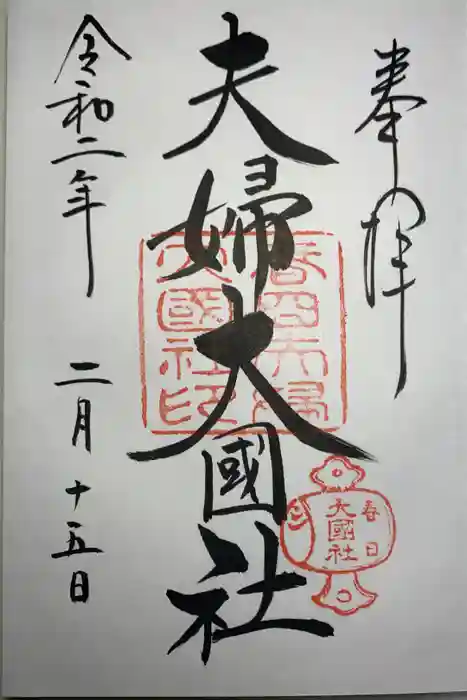 奉拝
夫婦大國社
春日夫婦
大國社印
春日
大國社
令和二年 二月 十五日